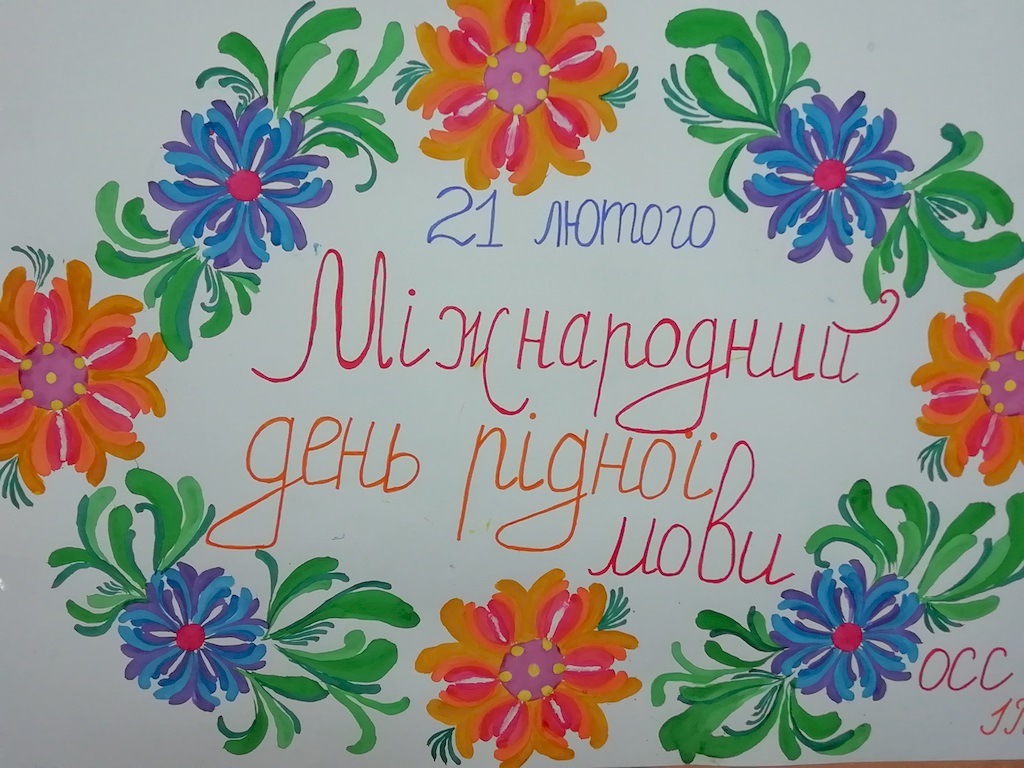 21 лютого
Міжнародний
день рідної
мови
ОСС